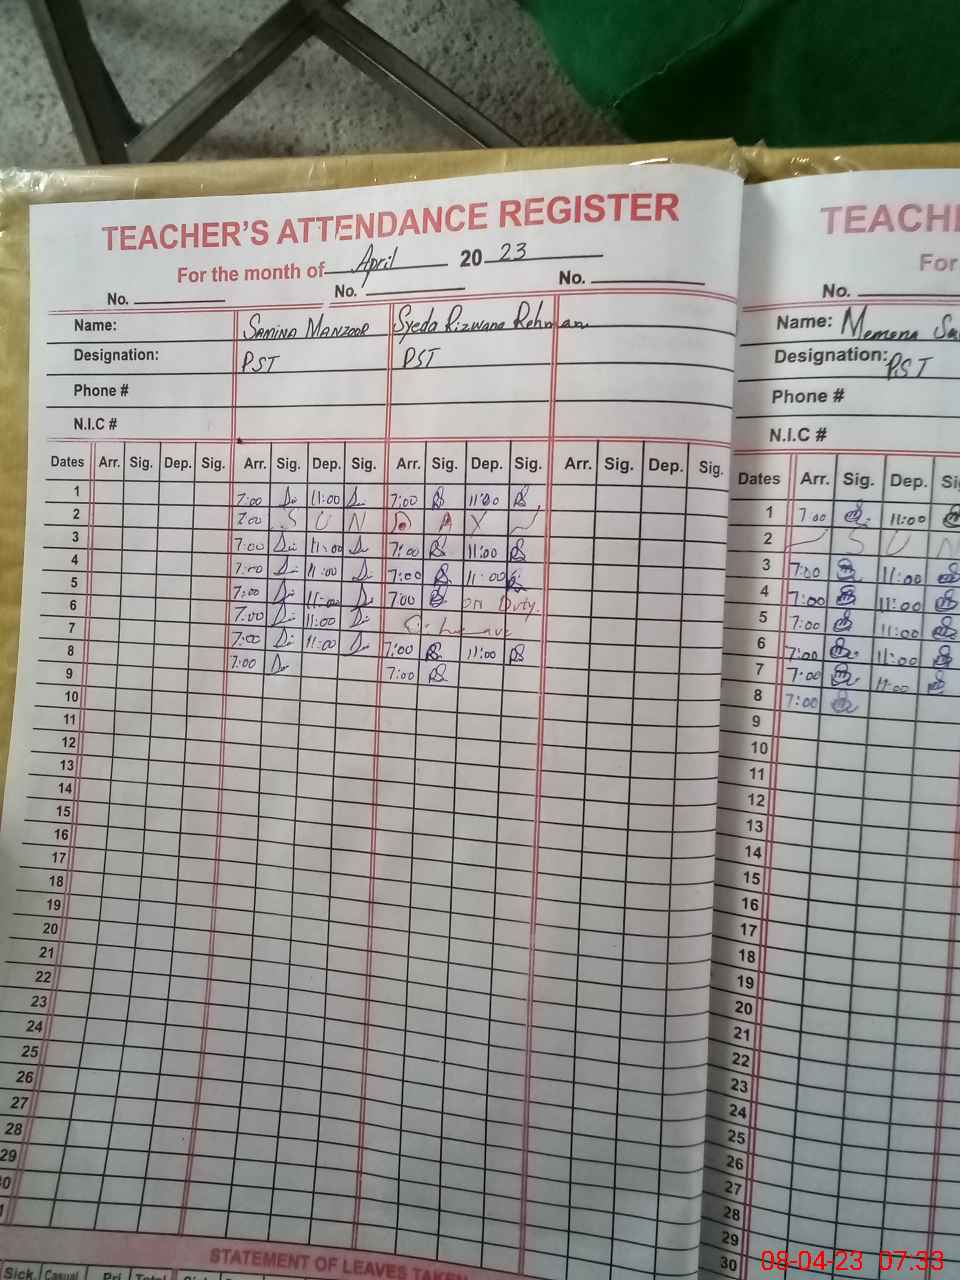 TEACHER'S ATTENDANCE REGISTER
For the month of April 2023
No. No. No.
Name: SAMINA MANZOOR Syeda Rizwana Rehman
Designation: PST PST
Phone #
N.I.C #
Dates Arr. Sig. Dep. Sig. Arr. Sig. Dep. Sig. Arr. Sig. Dep. Sig. Arr. Sig. Dep. Sig.
1 7:00 11:00 7:00 11:00
2 7:00 S U N D A Y
3 7:00 11:00 7:00 11:00
4 7:00 11:00 7:00 11:00
5 7:00 11:00 7:00 on Duty
6 7:00 11:00
7 7:00 11:00 7:00 11:00
8 7:00 7:00
9
10
11
12
13
14
15
16
17
18
19
20
21
22
23
24
25
26
27
28
29
0
1
STATEMENT OF LEAVES TAKEN
Sick. Casual Pri Total
TEACH
For
No.
Name: Memena
Designation: PST
Phone #
N.I.C #
Dates Arr. Sig. Dep. Si
1 7:00 11:00
2 S U N
3 7:00 11:00
4 7:00 11:00
5 7:00 11:00
6 7:00 11:00
7 7:00 11:00
8 7:00
9
10
11
12
13
14
15
16
17
18
19
20
21
22
23
24
25
26
27
28
29
30
08-04-23 07:33